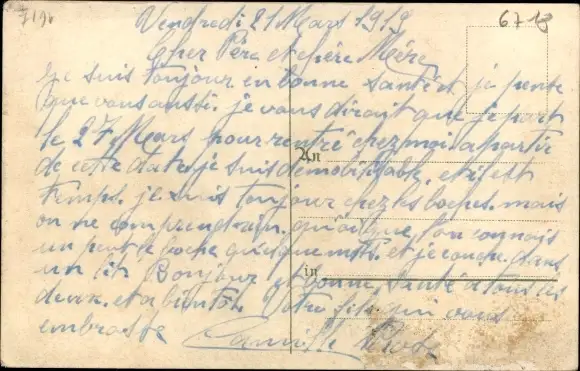 7196
6718
Vendredi 21 Mars 1919
Cher Père et chère Mère
Je suis toujour en bonne santé et je pense
que vous aussi. je vous dirait que je part
le 27 Mars pour rentré chez moi a partir
An
de cette date je suis demobilisable. et il est
temps. je suis toujour chez les boches. mais
on ne comprend rien. quoique l'on connais
un peut le boche quelque mots. et je couche dans
in
un lit Bonjour et bonne santé a tous les
deux. et a bientôt Votre fils qui vous
embrasse
Camille